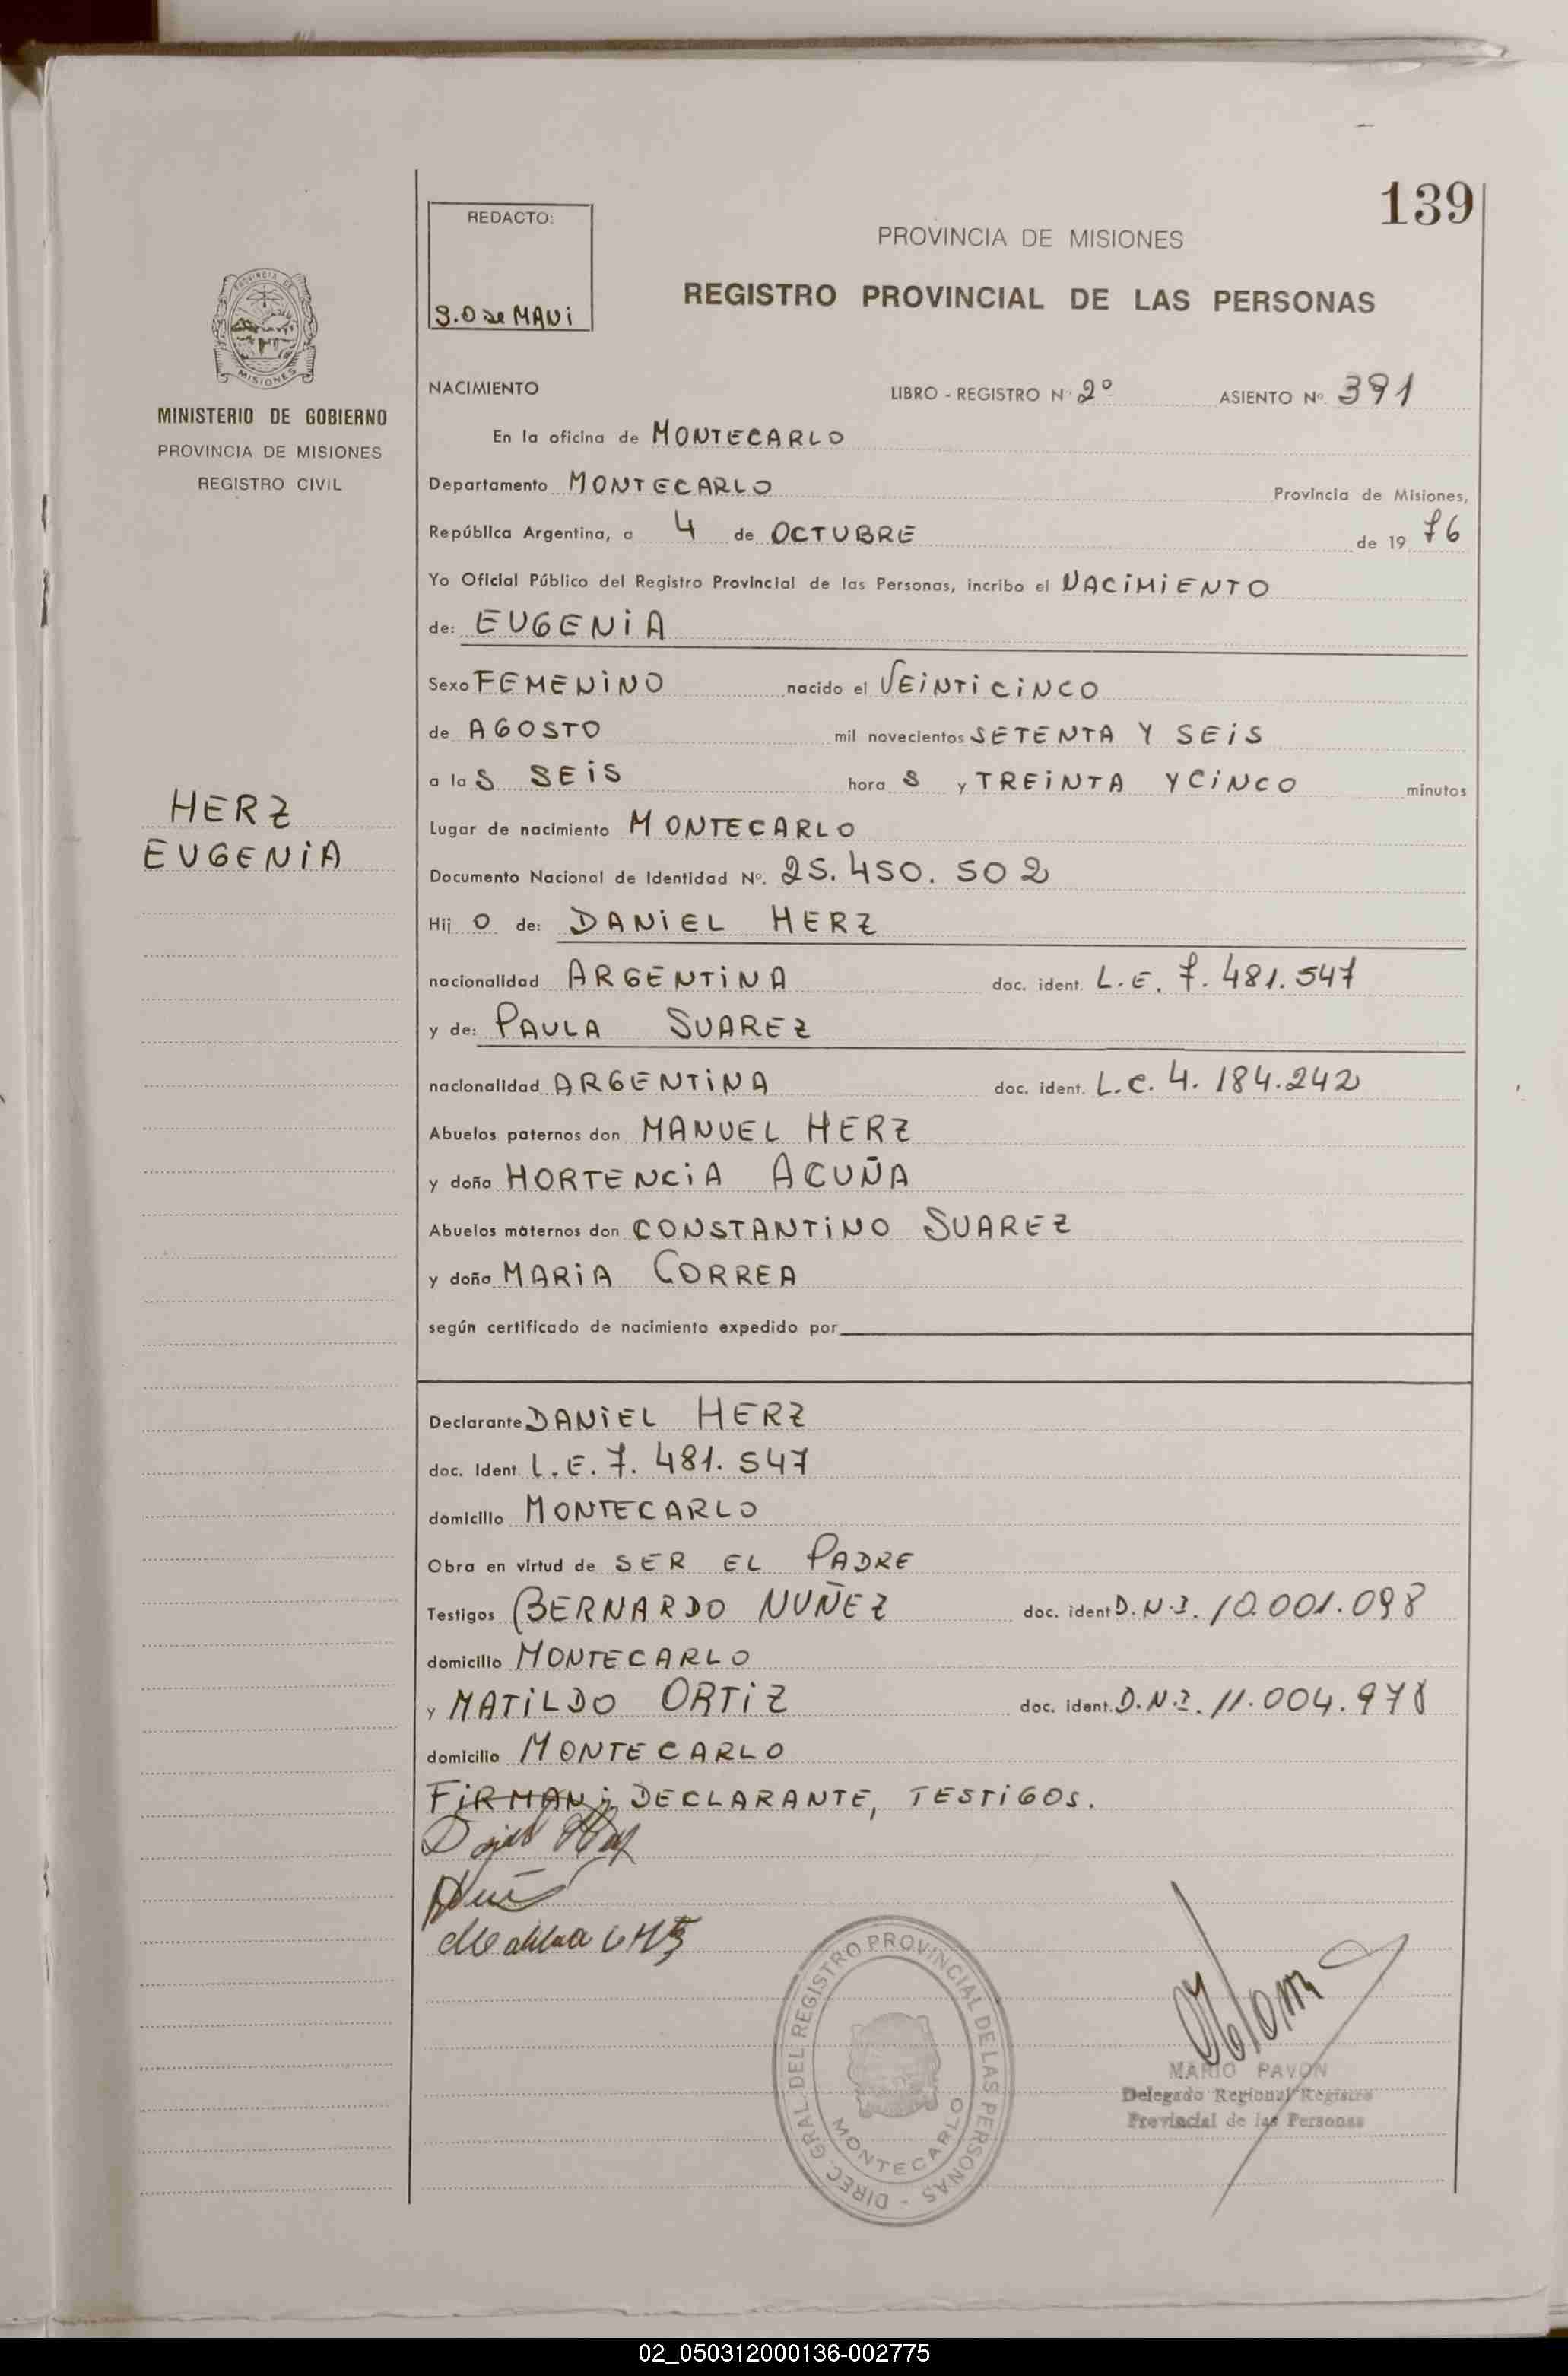 139
REDACTO:
S.O de MAUi
PROVINCIA DE MISIONES
REGISTRO PROVINCIAL DE LAS PERSONAS
MISIONES
MINISTERIO DE GOBIERNO
PROVINCIA DE MISIONES
REGISTRO CIVIL
HERZ
EUGENiA
NACIMIENTO LIBRO - REGISTRO Nº 2º ASIENTO Nº 391
En la oficina de MONTECARLO
Departamento MONTECARLO Provincia de Misiones,
República Argentina, a 4 de OCTUBRE de 19 76
Yo Oficial Público del Registro Provincial de las Personas, incribo el NACiMiENTO
de: EUGENiA
Sexo FEMENiNO nacido el VEiNTiCiNCO
de AGOSTO mil novecientos SETENTA Y SEiS
a la S SEiS hora S y TREiNTA Y CiNCO minutos
Lugar de nacimiento MONTECARLO
Documento Nacional de Identidad Nº. 25.450.502
Hij O de: DANiEL HERZ
nacionalidad ARGENTiNA doc. ident. L.E. 7.481.547
y de: PAULA SUAREZ
nacionalidad ARGENTiNA doc. ident. L.C. 4.184.242
Abuelos paternos don MANUEL HERZ
y doña HORTENCiA ACUÑA
Abuelos maternos don CONSTANTiNO SUAREZ
y doña MARiA CORREA
según certificado de nacimiento expedido por
Declarante DANiEL HERZ
doc. Ident. L.E. 7.481.547
domicilio MONTECARLO
Obra en virtud de SER EL PADRE
Testigos BERNARDO NUÑEZ doc. ident D.N.I. 10.001.098
domicilio MONTECARLO
y MATiLDO ORTiZ doc. ident. D.N.I. 11.004.978
domicilio MONTECARLO
FiRMAN: DECLARANTE, TESTiGOS.
DIREC. GRAL. DEL REGISTRO PROVINCIAL DE LAS PERSONAS - MONTECARLO
MARIO PAVON
Delegado Regional Registro
Provincial de las Personas
02_050312000136-002775